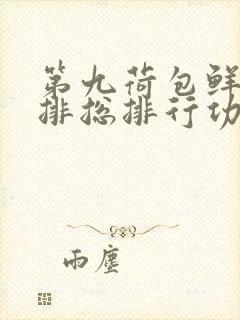 第九荷包鲜
排总排行功
雨尘